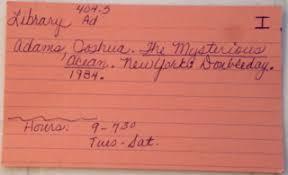 Library 404.5 I
Ad
Adams, Joshua. The Mysterious
Ocean. New York: Doubleday.
1984.
Hours: 9-730
Tues-Sat.